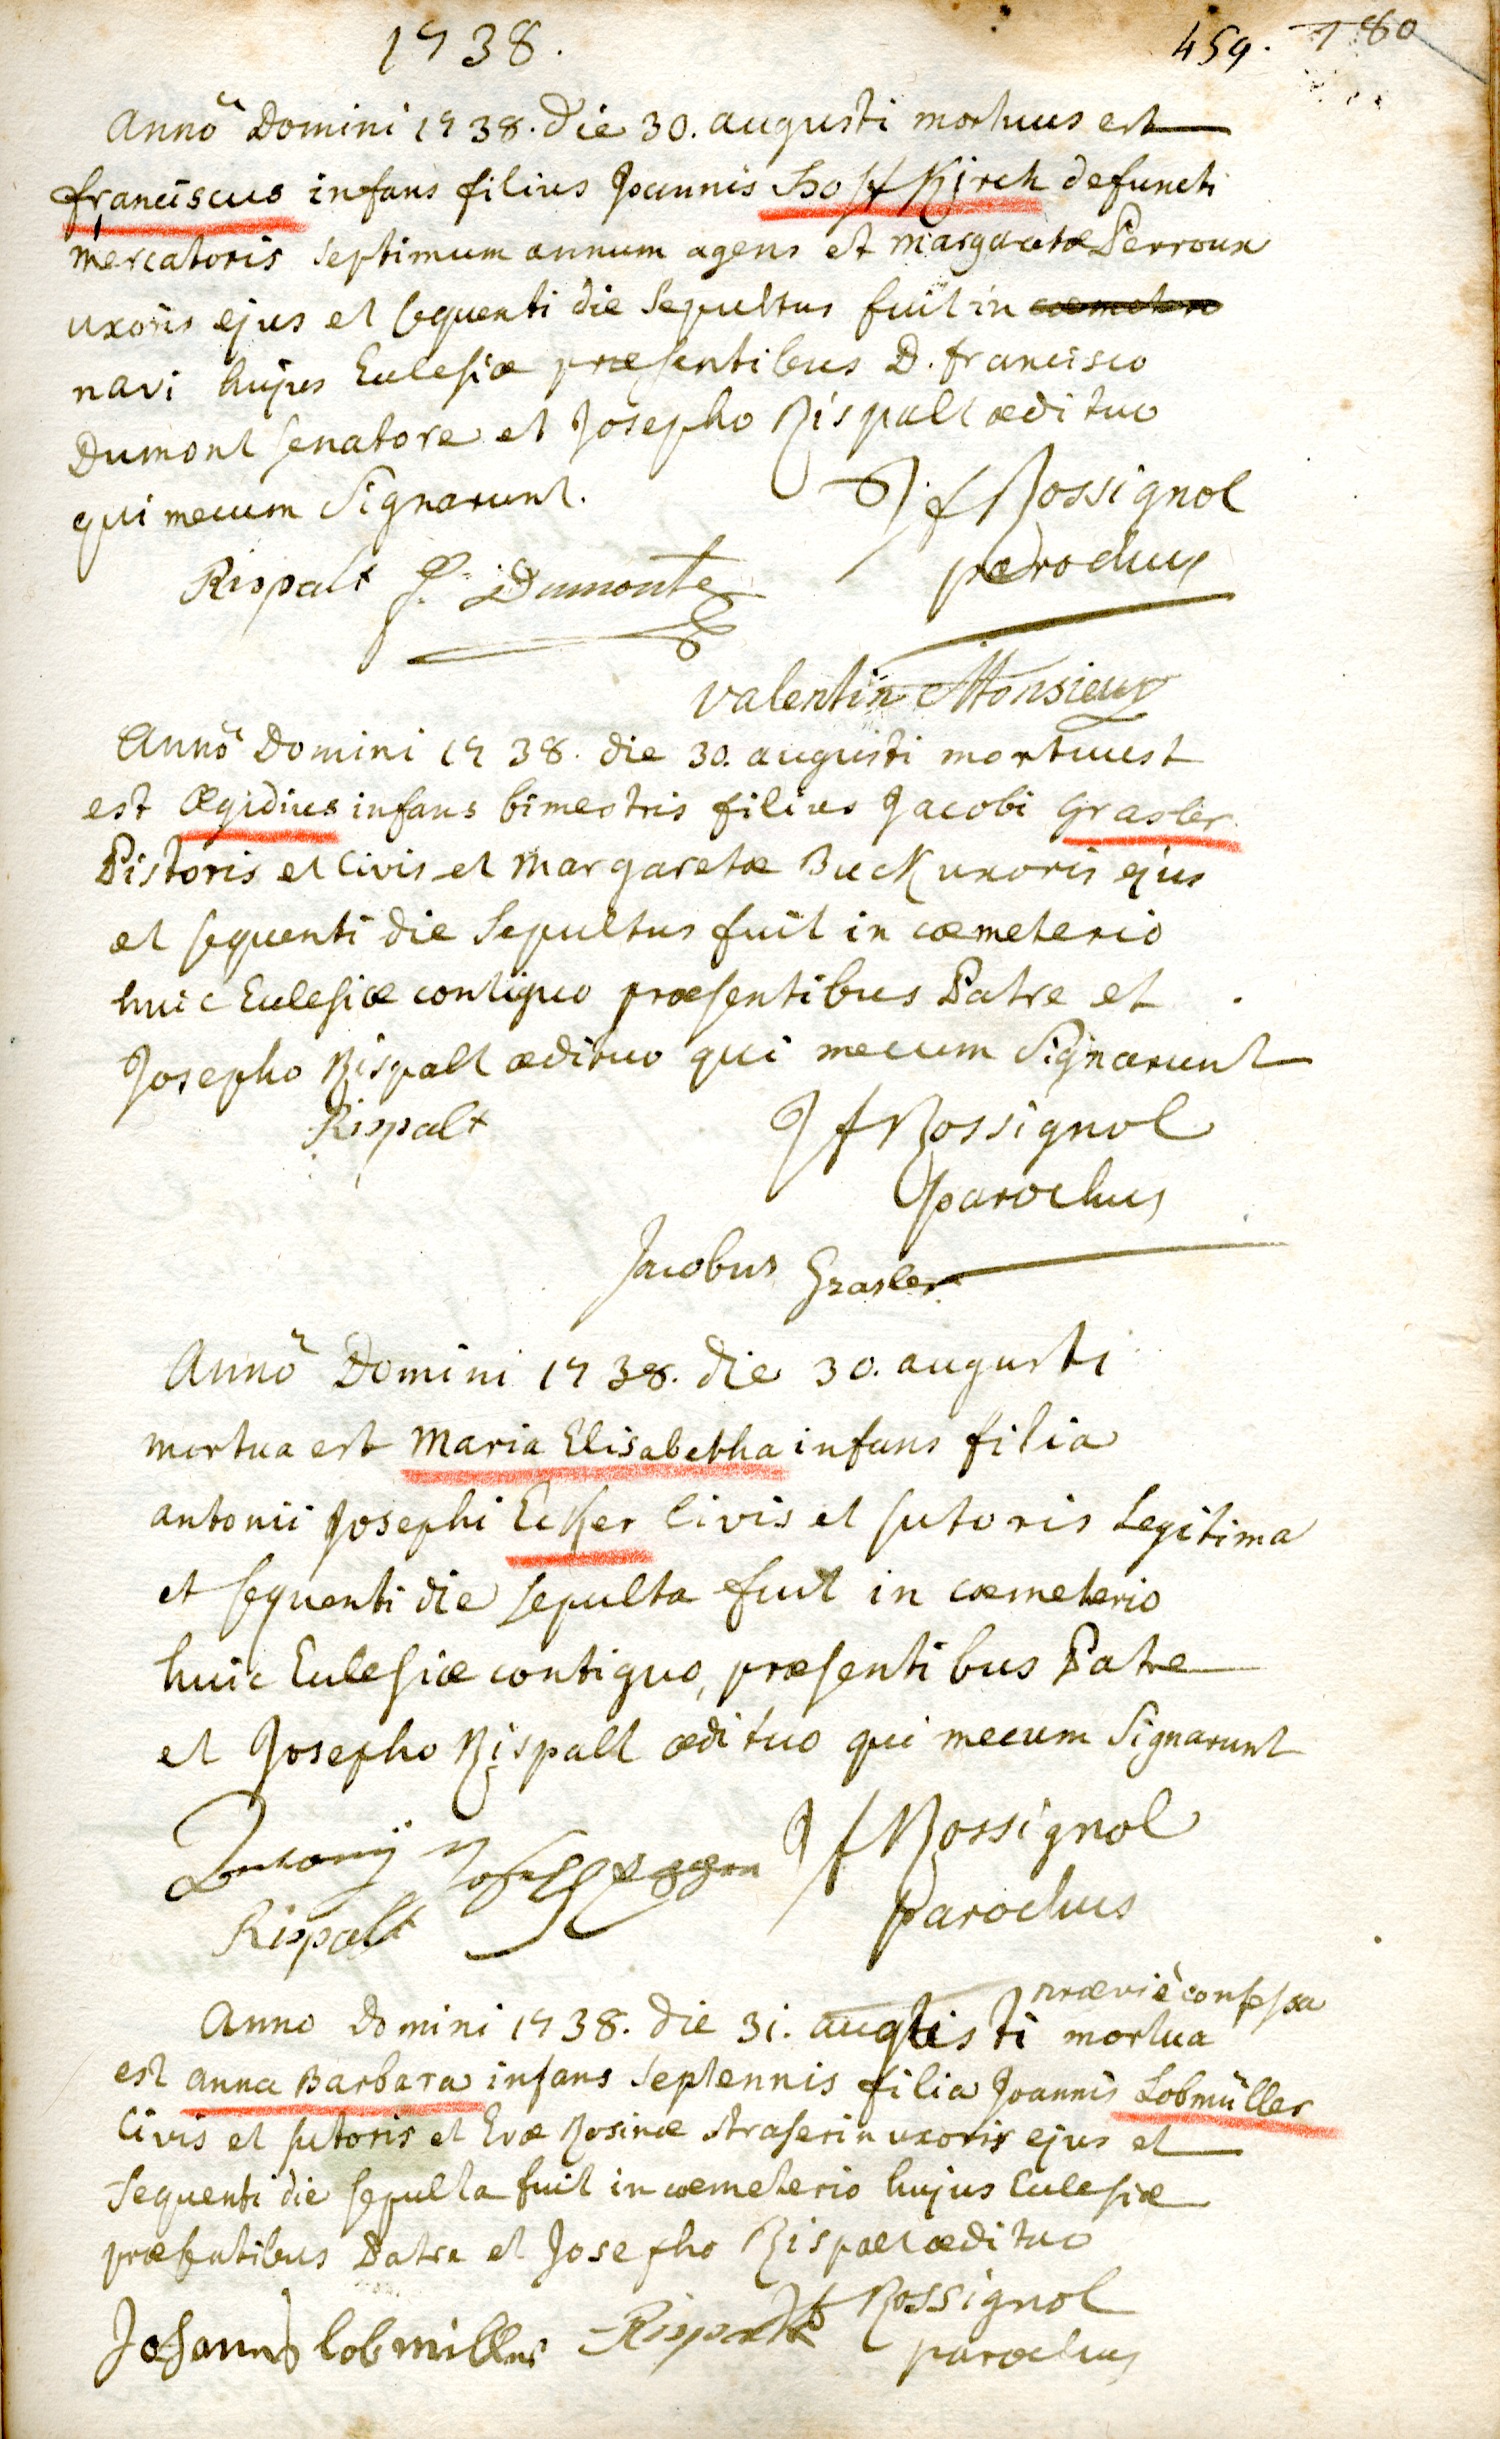 1738.
459. 180
Anno Domini 1738. die 30. augusti mortuus est
franciscus infans filius Joannis Hoffkirch defuncti
mercatoris septimum annum agens et margaretæ Perroux
uxoris ejus et sequenti die sepultus fuit in cœmeterio
navi hujus Eclesiæ præsentibus D. francisco
Dumont senatore et Josepho Rispalt ædituo
qui mecum signarunt.
J f Rossignol
Rispalt f. Dumonte parochus
valentin Monsieux
Anno Domini 1738. die 30. augusti mortuust
est Ægidius infans bimestris filius Jacobi Grasler
Pistoris et Civis et Margaretæ Buck uxoris ejus
et sequenti die sepultus fuit in cœmeterio
huic Eclesiæ contiguo præsentibus Patre et
Josepho Rispalt ædituo qui mecum signarunt
Rispalt J f Rossignol
parochus
Jacobus Grasler
Anno Domini 1738. die 30. augusti
mortua est Maria Elisabetha infans filia
antonii Josephi Ecker Civis et sutoris legitima
et sequenti die sepulta fuit in cœmeterio
huic Eclesiæ contiguo, præsentibus Patre
et Josepho Rispalt ædituo qui mecum signarunt
Antonij J f Rossignol
Rispalt parochus
præviè confessa
Anno Domini 1738. die 31. augusti mortua
est anna Barbara infans septennis filia Joannis Lobmüller
Civis et sutoris et Evæ Rosinæ Straserin uxoris ejus et
sequenti die sepulta fuit in cœmeterio hujus Eclesiæ
præsentibus Patre et Josepho Rispalt ædituo
Johannes lobmiller Rispalt J f Rossignol
parochus